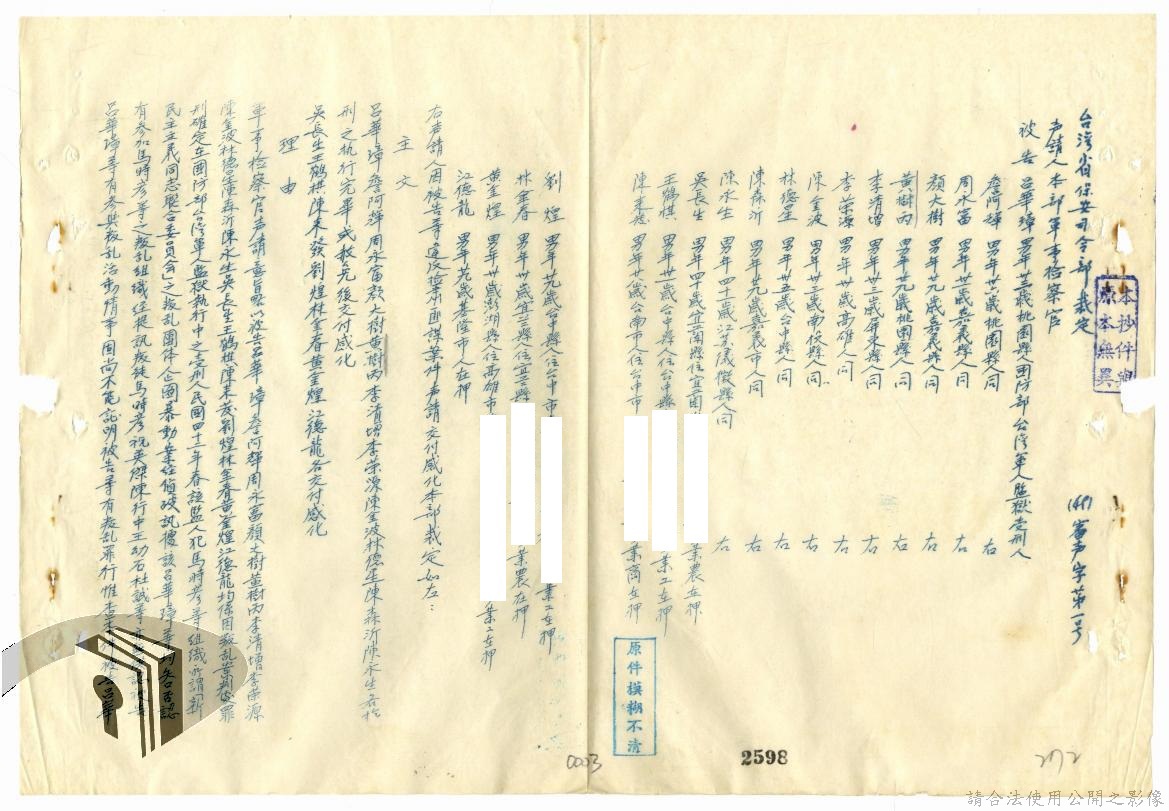 台灣省保安司令部裁定
(44)審声字第一号
声請人本部軍事檢察官
被告呂華璋男年卅三歲桃園縣人国防部台湾軍人監獄受刑人
詹阿輝男年廿六歲桃園縣人同右
周永富男年卅二歲嘉義縣人同右
顏大樹男年廿九歲嘉義縣人同右
黃樹丙男年廿九歲桃園縣人同右
李清增男年卅三歲屏東縣人同右
李荣源男年卅歲高雄人同右
陳金波男年卅三歲南投縣人同右
林德星男年卅五歲台中縣人同右
陳森沂男年廿九歲嘉義市人同右
陳永生男年四十二歲江苏儀徵縣人同右
吳長生男年四十歲宜蘭縣住宜蘭 業農在押
王鶴棋男年卅二歲台中縣人住台中縣 業工在押
陳來發男年廿八歲台南市人住台中市 業商在押
劉煌男年廿九歲台中縣人住台中市 業工在押
林金春男年卅歲宜兰縣人住宜兰縣 業農在押
黃金煌男年卅歲澎湖縣人住高雄市 業工在押
江德龍男年廿九歲基隆市人在押
右声請人因被告等違反檢肅匪諜案件声請交付感化本部裁定如左：
主文
呂華璋詹阿輝周永富顏大樹黃樹丙李清增李荣源陳金波林德星陳森沂陳永生各於
刑之執行完畢或赦免後交付感化
吳長生王鶴棋陳來發劉煌林金春黃金煌江德龍各交付感化
理由
軍事檢察官声請意旨略以被告呂華璋詹阿輝周永富顏大樹黃樹丙李清增李荣源
陳金波林德星陳森沂陳永生吳長生王鶴棋陳來發劉煌林金春黃金煌江德龍均係因叛乱案判處罪
刑確定在国防部台湾軍人監獄執行中之受刑人民國四十二年春該監人犯馬時彥等組織所謂「新
民主主義同志聯合委員会」之叛乱團体企圖暴動業經偵破訊據該呂華璋等均矢口否認
有參加馬時彥等之叛乱組織經提訊叛徒馬時彥祝英傑陳行中王幼石杜誠等亦
呂華璋等有參與叛乱活動情事固尚不足証明被告等有叛乱罪行惟查 被告呂華
本抄件與
原本無異
原件模糊不清
0003
2598
272
請合法使用公開之影像